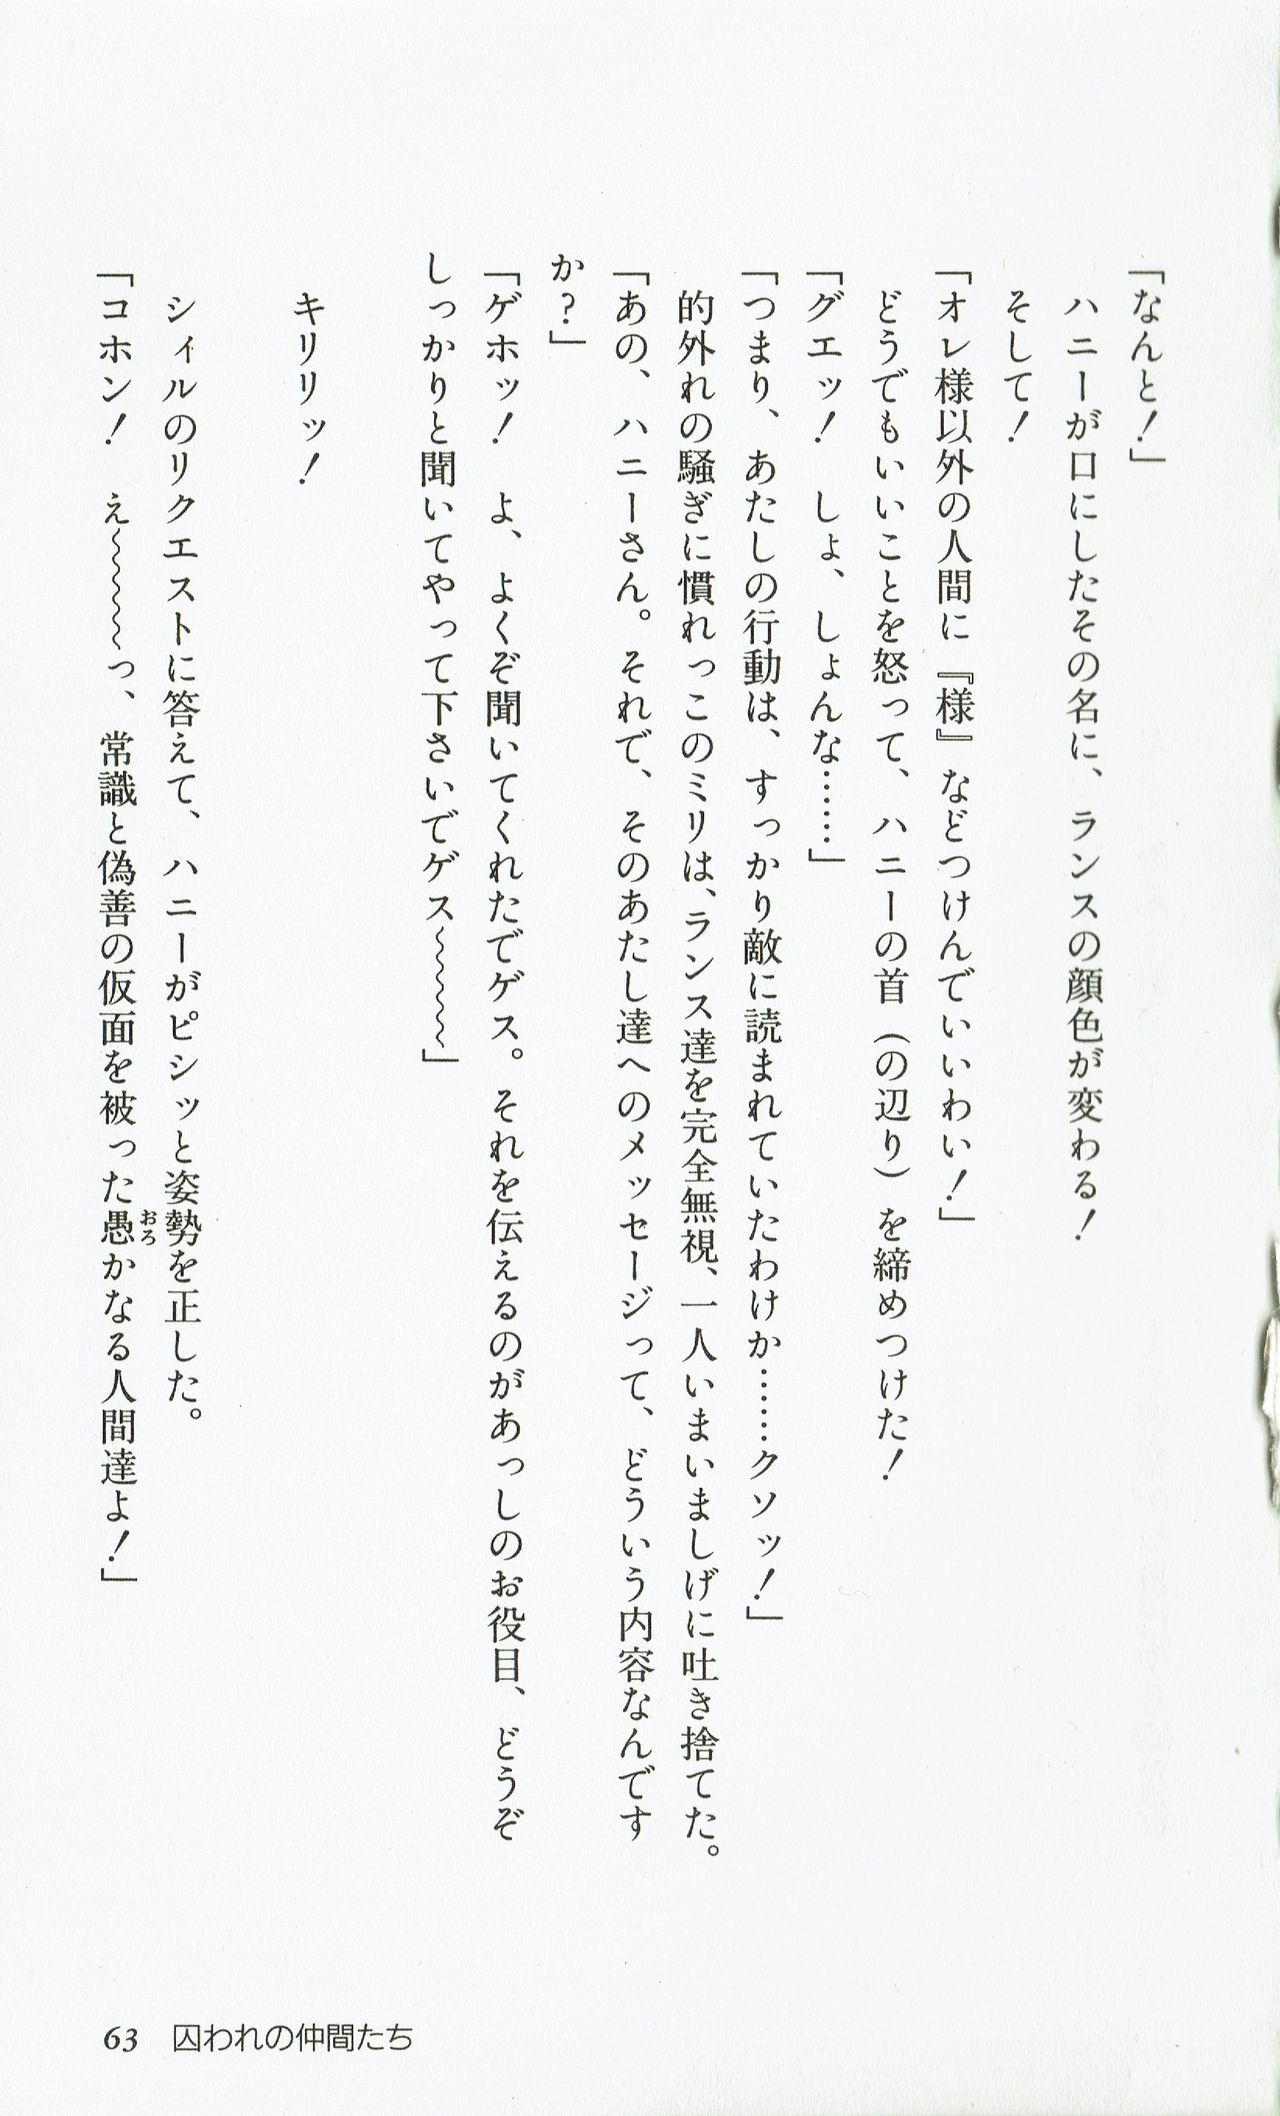 「なんと！」
　ハニーが口にしたその名に、ランスの顔色が変わる！
　そして！
「オレ様以外の人間に『様』などつけんでいいわい！」
　どうでもいいことを怒って、ハニーの首（の辺り）を締めつけた！
「グエッ！　しょ、しょんな……」
「つまり、あたしの行動は、すっかり敵に読まれていたわけか……クソッ！」
　的外れの騒ぎに慣れっこのミリは、ランス達を完全無視、一人いまいましげに吐き捨てた。
「あの、ハニーさん。それで、そのあたし達へのメッセージって、どういう内容なんです
か？」
「ゲホッ！　よ、よくぞ聞いてくれたでゲス。それを伝えるのがあっしのお役目、どうぞ
しっかりと聞いてやって下さいでゲス〜〜〜〜」
　キリリッ！
　シィルのリクエストに答えて、ハニーがピシッと姿勢を正した。
「コホン！　え〜〜〜〜っ、常識と偽善の仮面を被った愚かなる人間達よ！」
おろ
63　囚われの仲間たち